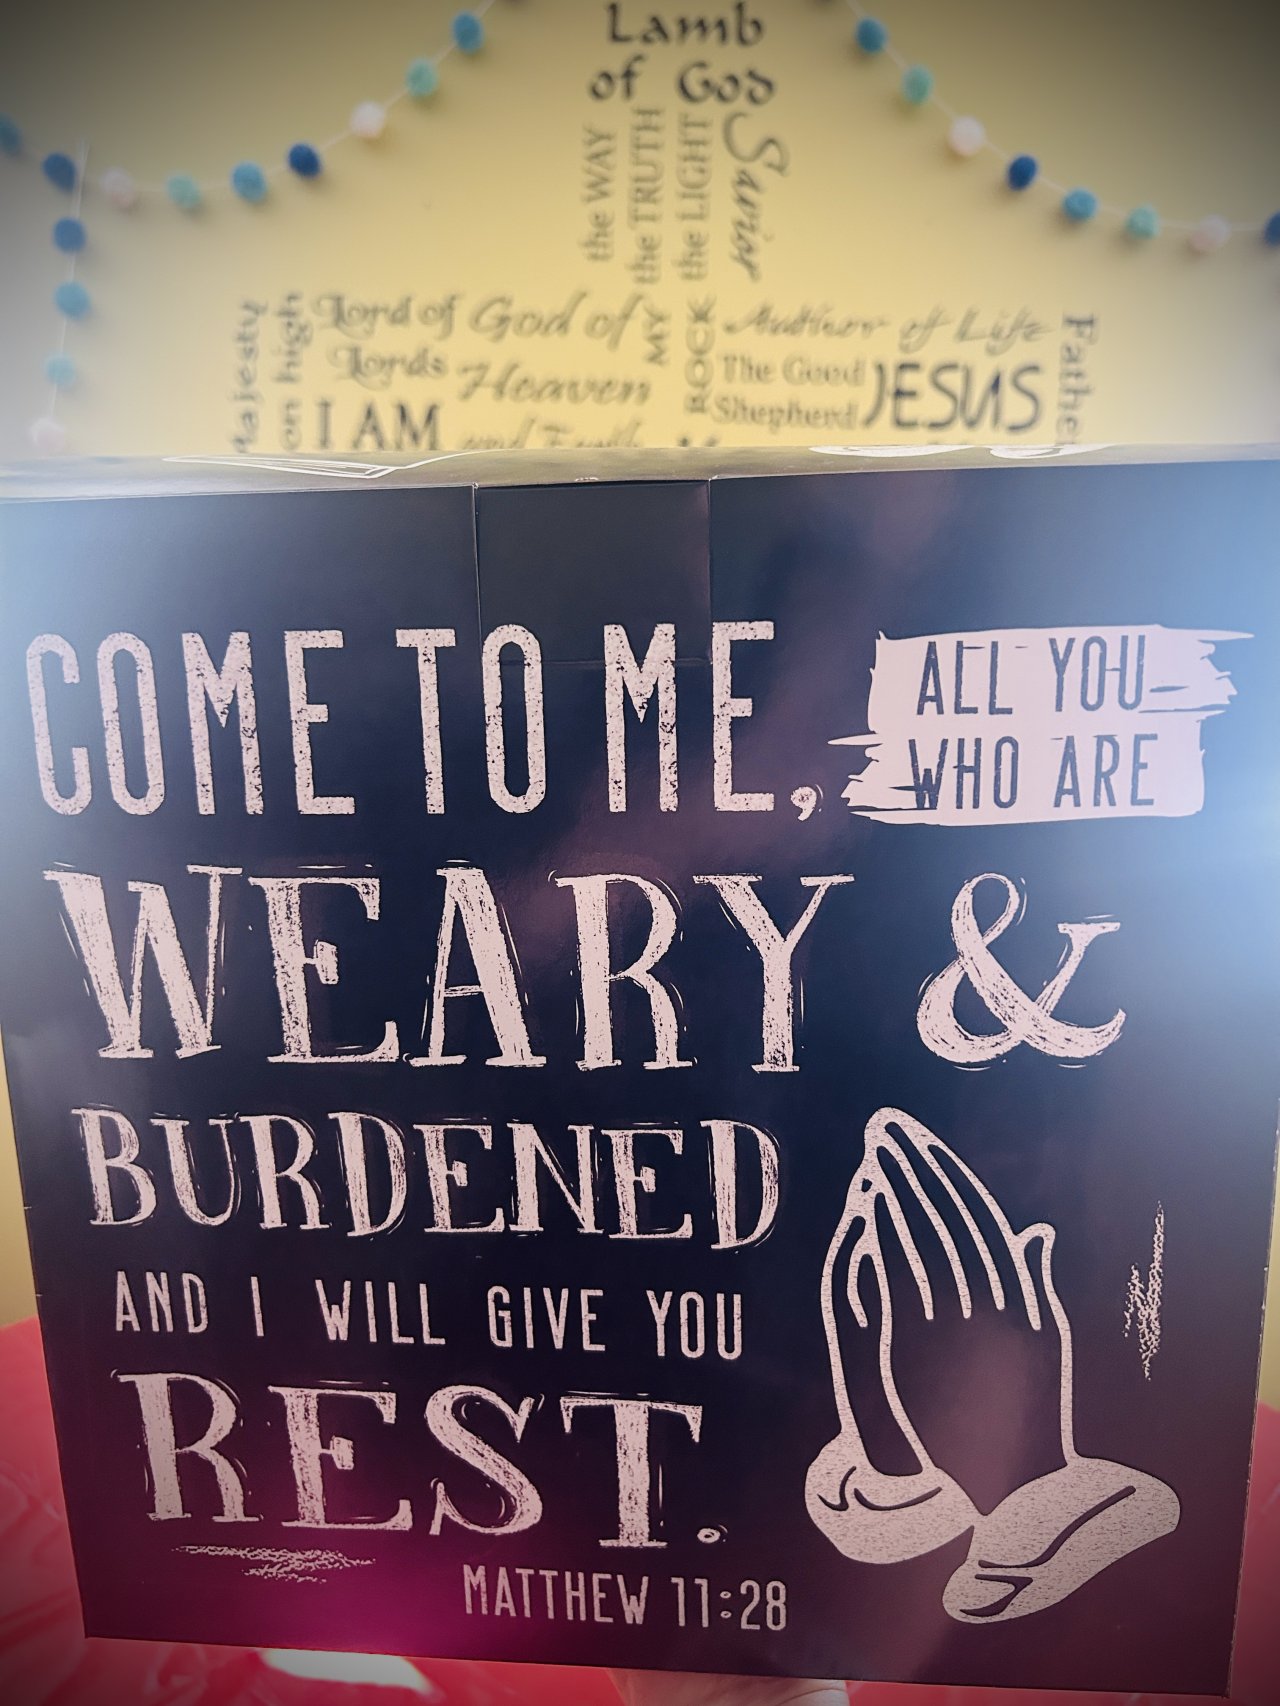 Lamb
of God
the WAY
the TRUTH
the LIGHT
Savior
Majesty
on high
Lord of
Lords
I AM
God of
Heaven
and Earth
MY
ROCK
Author of Life
The Good
Shepherd
JESUS
Father
COME TO ME,
ALL YOU
WHO ARE
WEARY &
BURDENED
AND I WILL GIVE YOU
REST.
MATTHEW 11:28